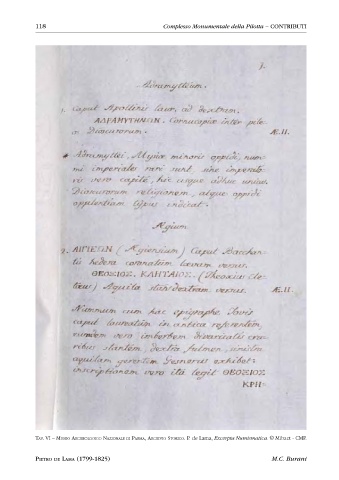 118
Complesso Monumentale della Pilotta – CONTRIBUTI
1.
Adramyttium.
1. Caput Apollinis laur. ad dextram.
ΑΔΡΑΜΥΤΗΝΩΝ. Cornucopiæ inter pileos
Dioscurorum. Æ.II.
* Adramyttei, Mysiæ minoris oppidi, num-
mi imperiales rari sunt sine imperato-
ris vero capite, hic usque adhuc unicus.
Dioscurorum religionem, atque oppidi
opulentiam typus indicat.
Ægium.
2. ΑΙΓΙΕΩΝ (Ægiensium) Caput Bacchan-
tis hedera coronatum lævam versus.
ΘΕΟΞΙΟΣ. ΚΛΗΤΑΙΟΣ. (Theoxius Cle-
tæus) Aquila stans dextram versus. Æ.II.
Nummum cum hac epigraphe Jovis
caput laureatum in antica referentem,
eumdem vero imberbem divaricatis cru-
ribus stantem, dextra fulmen, sinistra
aquilam gerentem Gesnerus exhibet:
inscriptionem vero ita legit ΘΕΟΞΙΟΣ
ΚΡΗ-
TAV. VI – MUSEO ARCHEOLOGICO NAZIONALE DI PARMA, ARCHIVIO STORICO. P. de Lama, Excerpta Numismatica. © MiBact - CMP.
PIETRO DE LAMA (1799-1825)
M.C. Burani